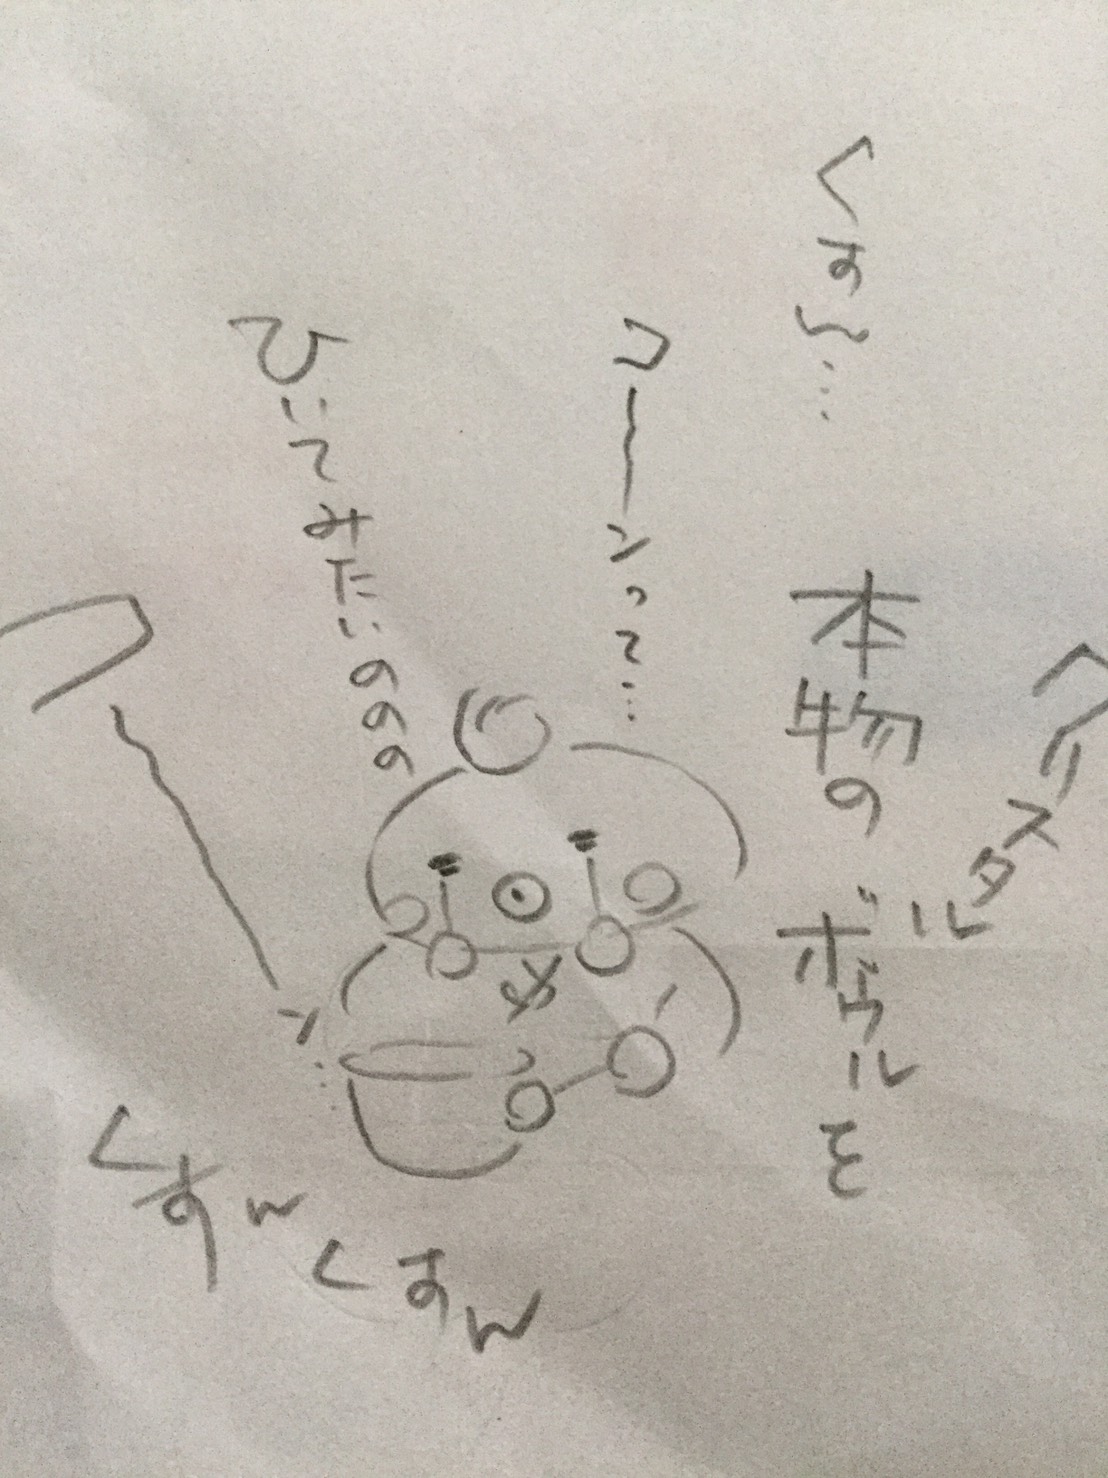 クリスタル
くすん…
本物のボウルを
コーンって…
ひいてみたいののの
コーン…
くすんくすん